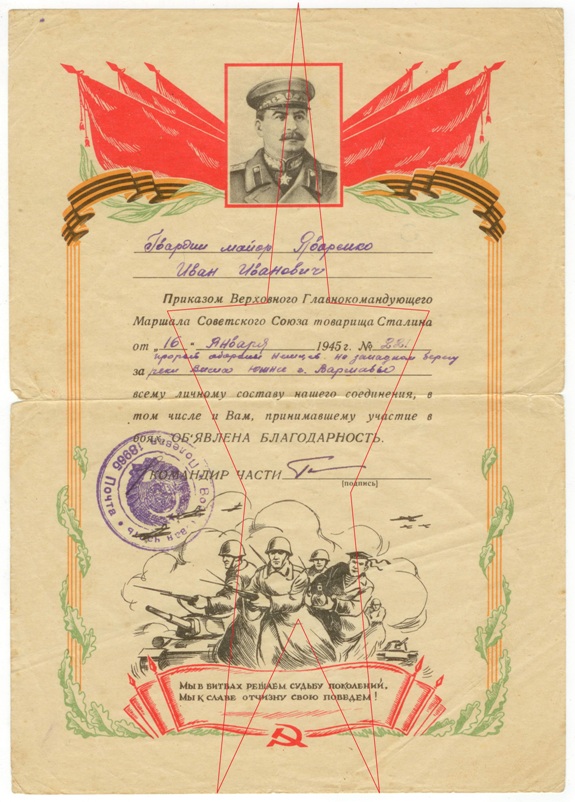 Гвардии майор Ябаренко
Иван Иванович
Приказом Верховного Главнокомандующего
Маршала Советского Союза товарища Сталина
от „ 16 “ Января 1945 г. №
прорыв обороны немцев на западном берегу
за реки Висла южнее г. Варшавы
всему личному составу нашего соединения, в
том числе и Вам, принимавшему участие в
боях, ОБ'ЯВЛЕНА БЛАГОДАРНОСТЬ.
КОМАНДИР ЧАСТИ
(подпись)
Полевая Почта 18986
МЫ В БИТВАХ РЕШАЕМ СУДЬБУ ПОКОЛЕНИЙ,
МЫ К СЛАВЕ ОТЧИЗНУ СВОЮ ПОВЕДЕМ!